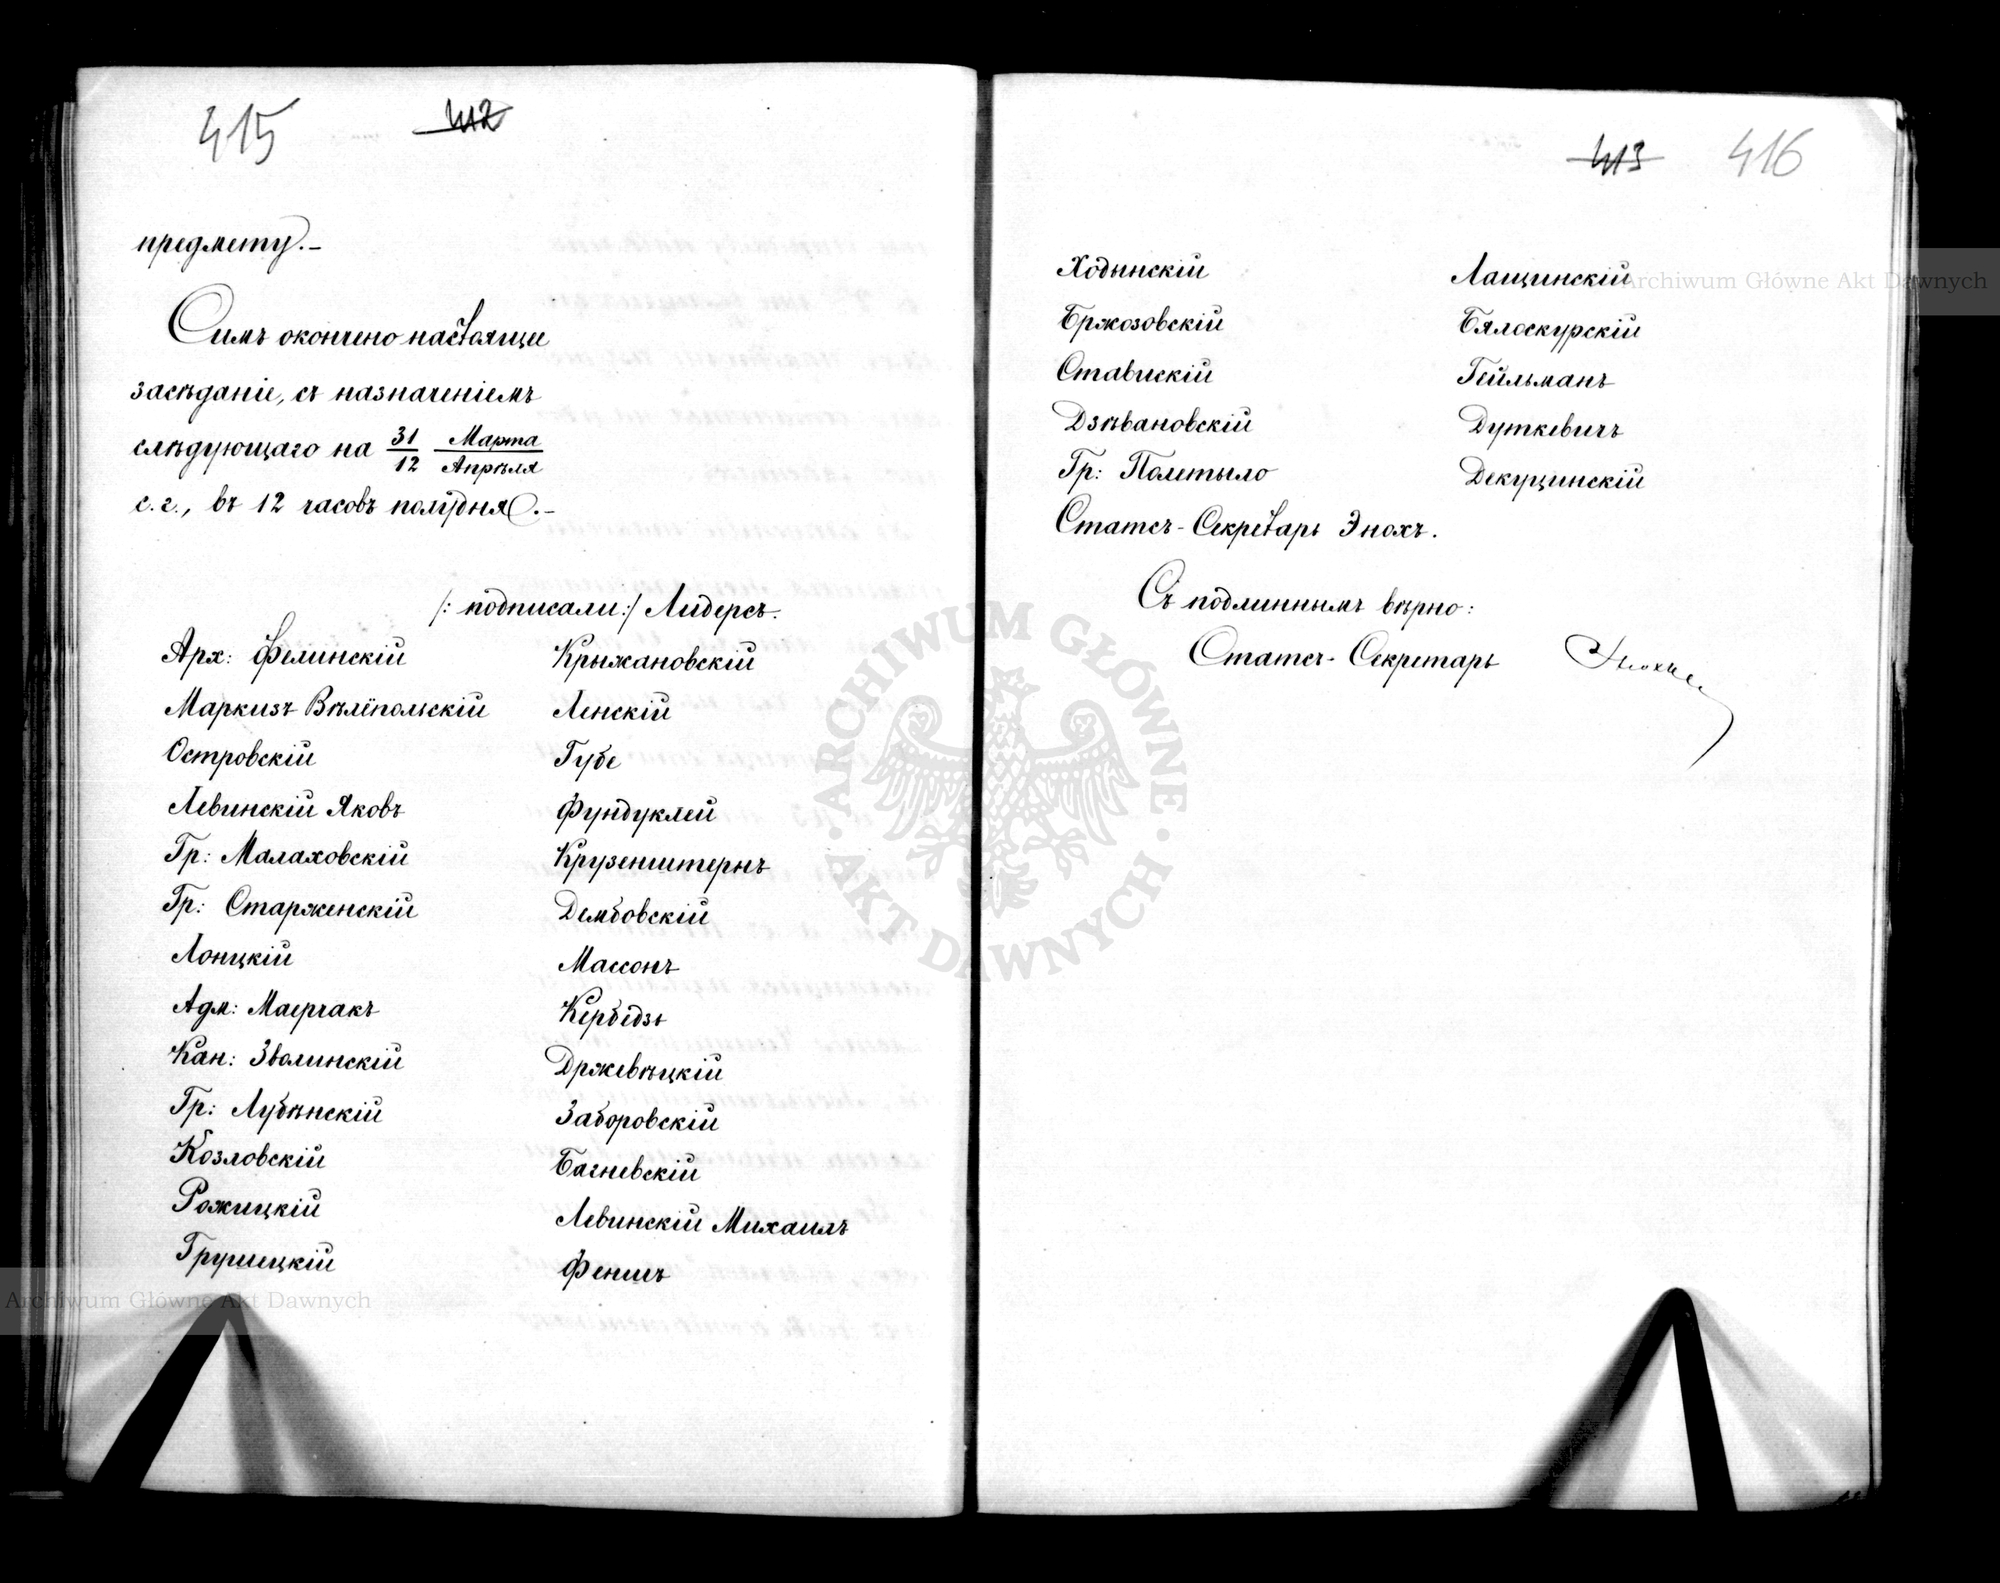 415
412
предмету.–
Симъ окончено настоящее
засѣданіе, съ назначеніемъ
слѣдующаго на 31/12 Марта/Апрѣля
с. г., въ 12 часовъ полудня.–
/: подписали :/ Лидерсъ.
Арх: Фелинскій
Маркизъ Вѣлёпольскій
Островскій
Левинскій Яковъ
Гр: Малаховскій
Гр: Старженскій
Лонцкій
Адм: Маерчакъ
Кан: Зволинскій
Гр: Лубѣнскій
Козловскій
Рожицкій
Грушецкій
Крыжановскій
Ленскій
Губе
Фундуклей
Крузенштернъ
Дембовскій
Массонъ
Кербедзь
Држевѣцкій
Заборовскій
Багневскій
Левинскій Михаилъ
Феншъ
413
416
Ходынскій
Бржозовскій
Ставискій
Дзѣвановскій
Гр: Полетыло
Лащинскій
Бялоскурскій
Гейльманъ
Дуткевичъ
Декуцинскій
Статсъ-Секретарь Энохъ.
Съ подлиннымъ вѣрно:
Статсъ-Секретарь Энохъ
Archiwum Główne Akt Dawnych
Archiwum Główne Akt Dawnych
ARCHIWUM GŁÓWNE · AKT DAWNYCH ·